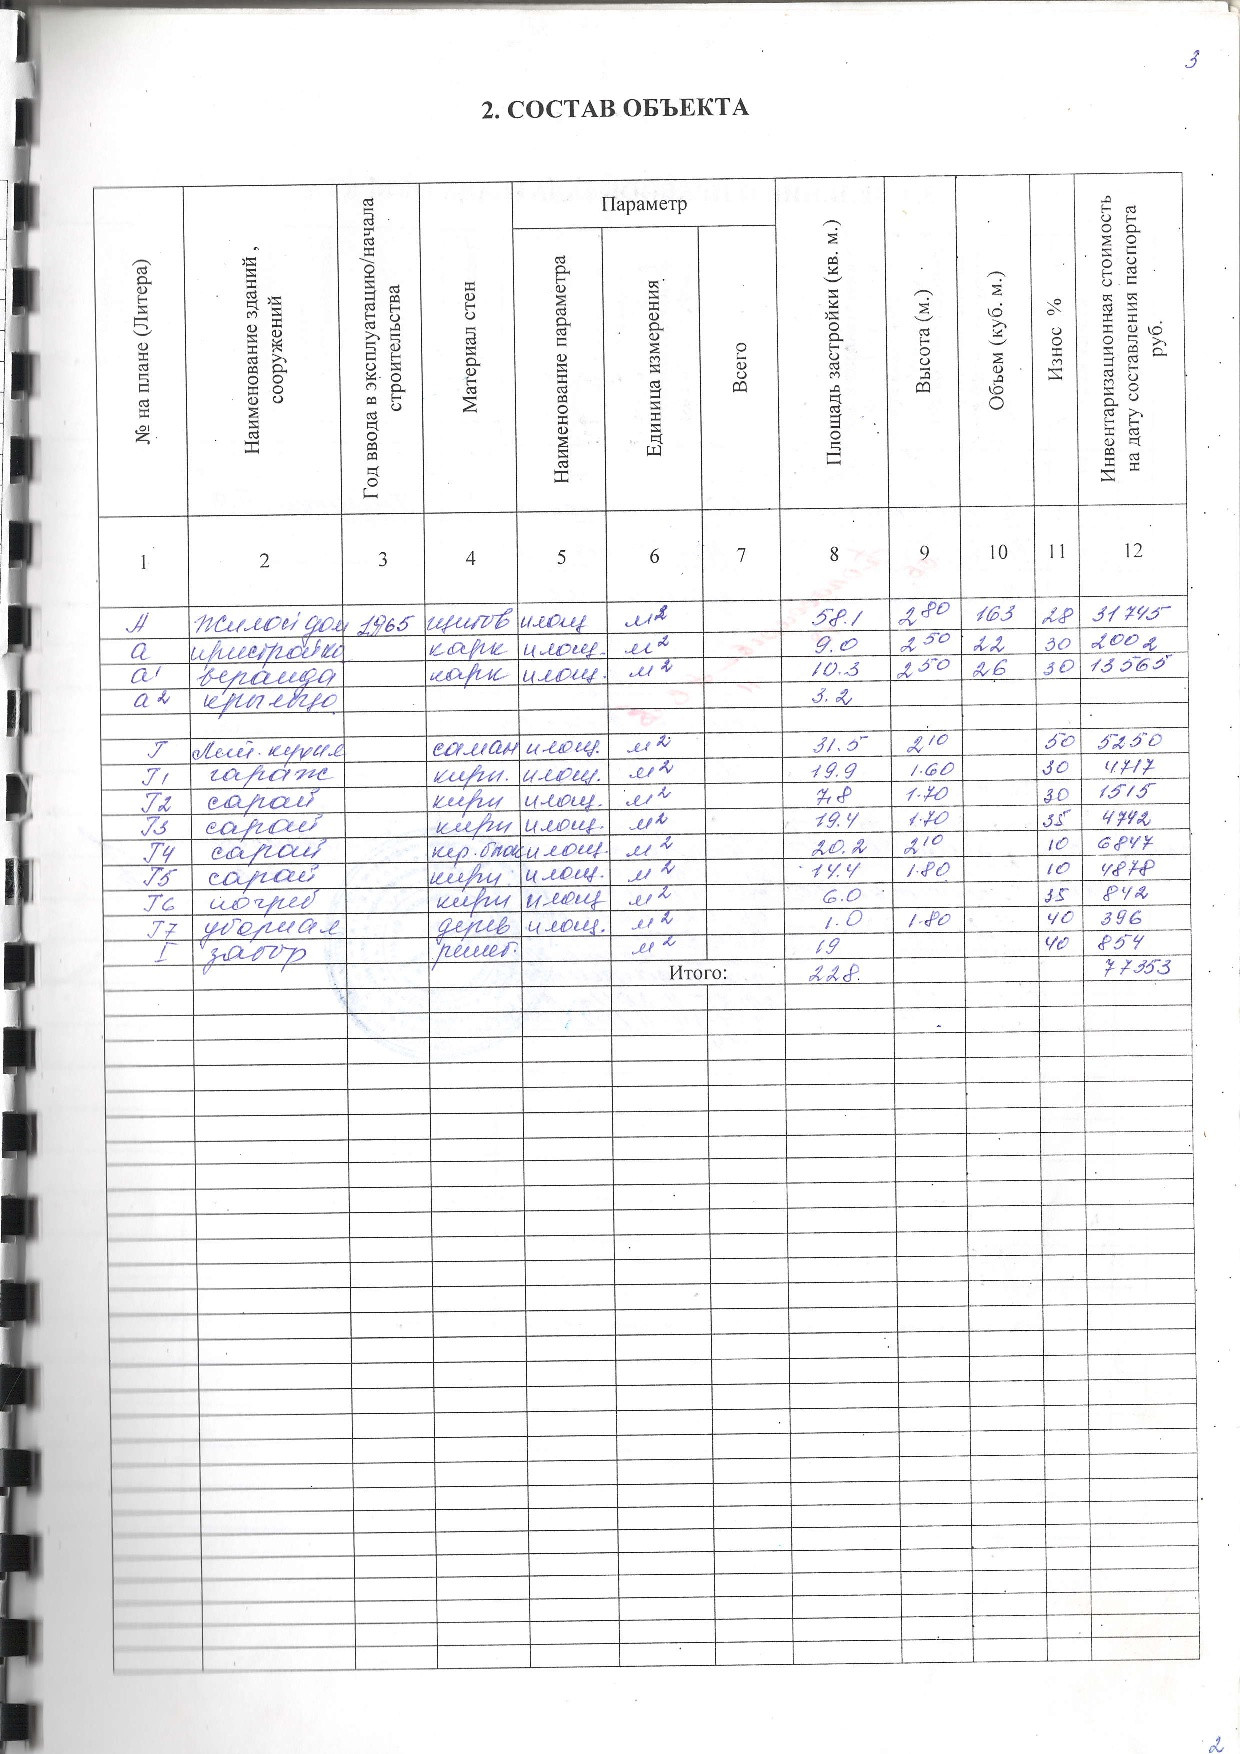 3
2. СОСТАВ ОБЪЕКТА
№ на плане (Литера)
Наименование зданий ,
сооружений
Год ввода в эксплуатацию/начала
строительства
Материал стен
Параметр
Наименование параметра
Единица измерения
Всего
Площадь застройки (кв. м.)
Высота (м.)
Объем (куб. м.)
Износ %
Инвентаризационная стоимость
на дату составления паспорта
руб.
1 2 3 4 5 6 7 8 9 10 11 12
А Жилой дом 1965 щитов площ м2 58.1 2 80 163 28 31745
а пристройка карк площ. м2 9.0 2 50 22 30 2002
а1 веранда карк площ. м2 10.3 2 50 26 30 13565
а2 крыльцо 3.2
Г Лет. кухня саман площ. м2 31.5 2 10 50 5250
Г1 гараж кирп. площ. м2 19.9 1.60 30 4717
Г2 сарай кирп площ. м2 7,8 1.70 30 1515
Г3 сарай кирп площ. м2 19.4 1.70 35 4742
Г4 сарай кер.блок площ. м2 20.2 2 10 10 6847
Г5 сарай кирп площ. м2 14.4 1.80 10 4878
Г6 погреб кирп площ м2 6.0 35 842
Г7 уборная дерев площ. м2 1.0 1.80 40 396
I забор решет. м2 19 40 854
Итого: 228. 77353
2